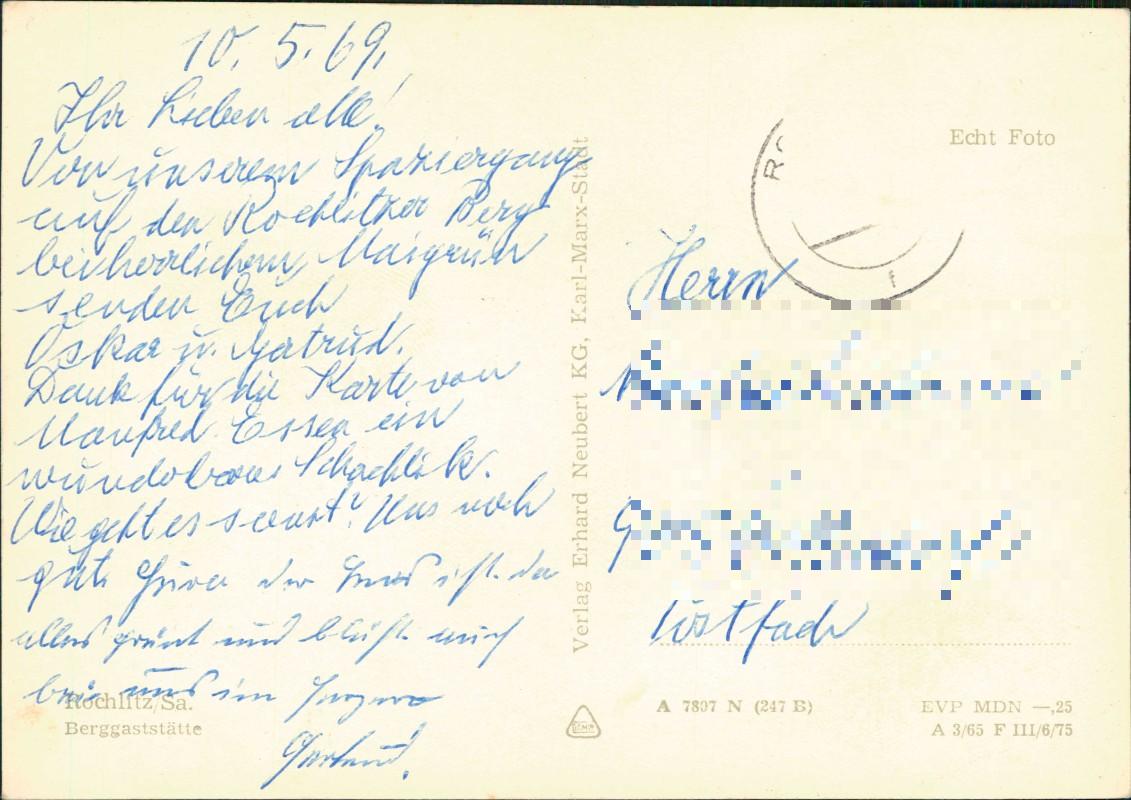 10. 5. 69.
Ihr Lieben alle!
Von unserem Spaziergang
auf den Rochlitzer Berg
bei herrlichem Maigrün
senden Euch
Oskar u. Gertrud.
Dank für die Karte von
Manfred. Essen ein
wunderbares Schachlik.
Wie geht es sonst? Uns noch
gut.
alles grünt und blüht auch
bei uns im
Rochlitz/Sa.
Berggaststätte
Verlag Erhard Neubert KG, Karl-Marx-Stadt
Echt Foto
Herrn
Postfach
A 7897 N (247 B)
EVP MDN —,25
A 3/65 F III/6/75